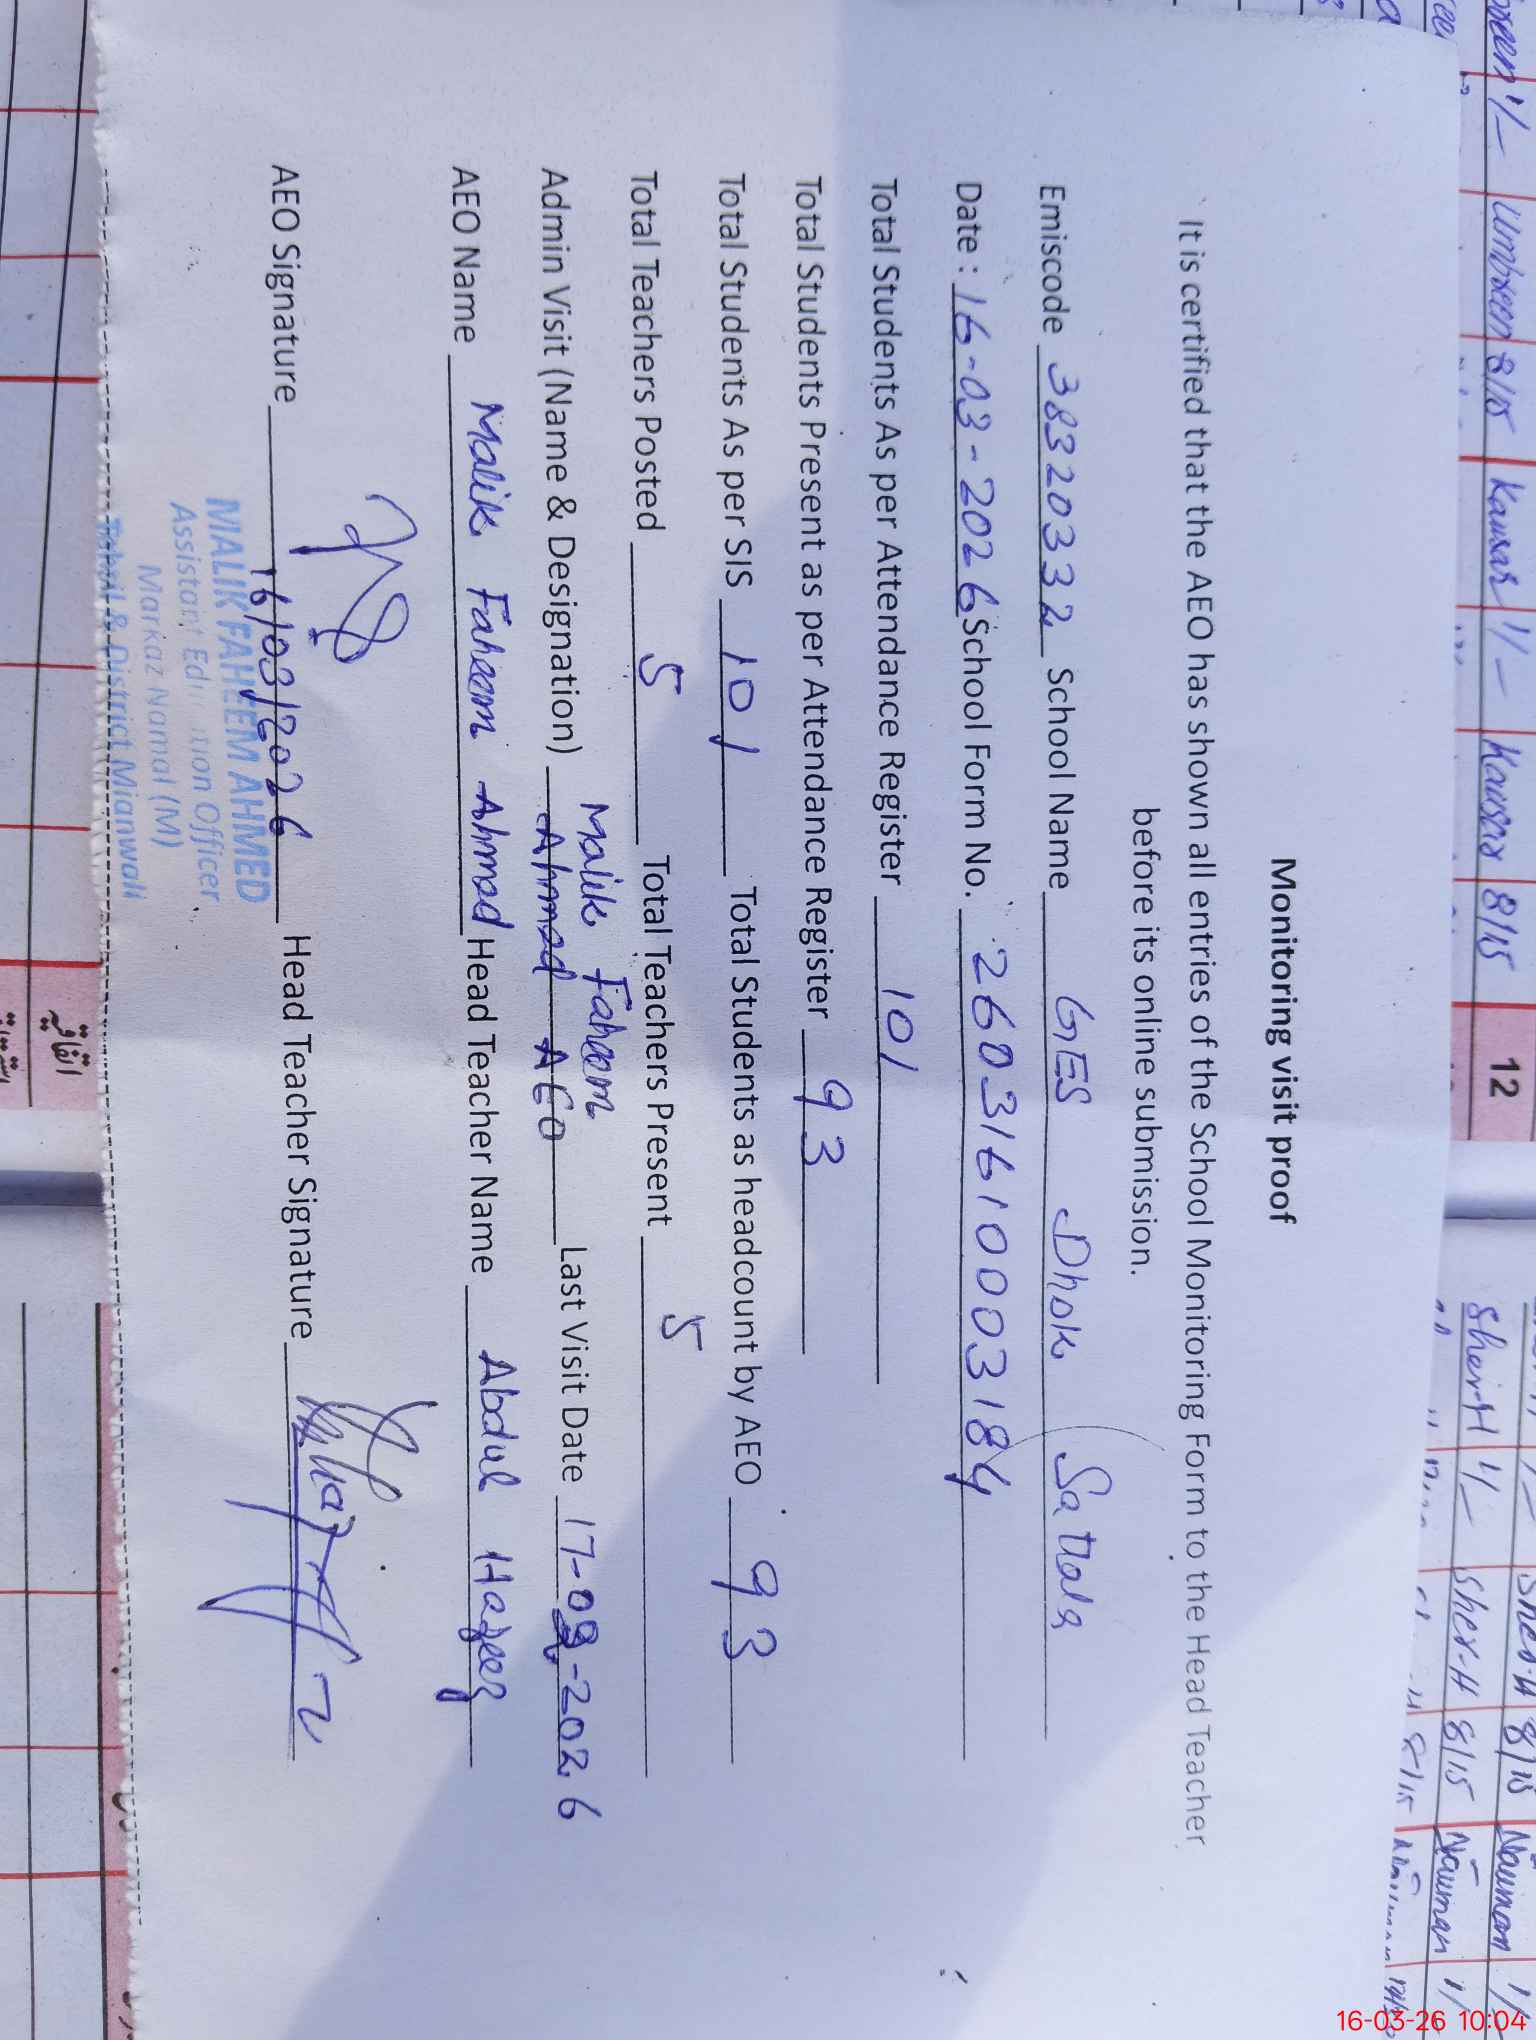 Monitoring visit proof
It is certified that the AEO has shown all entries of the School Monitoring Form to the Head Teacher
before its online submission.
Emiscode 38320332 School Name GES Dhok
Date : 16-03-2026 School Form No. 26031610003184
Total Students As per Attendance Register 101
Total Students Present as per Attendance Register 93
Total Students As per SIS 101 Total Students as headcount by AEO 93
Total Teachers Posted 5 Total Teachers Present 5
Admin Visit (Name & Designation) Malik Faheem Ahmad AEO Last Visit Date 17-02-2026
AEO Name Malik Faheem Ahmad Head Teacher Name Abdul
AEO Signature 16/03/2026 Head Teacher Signature
MALIK FAHEEM AHMED
Assistant Education Officer
Markaz Namal (M)
Tehsil & District Mianwali
12
Umbreen 8/15 Kausar 1/- Kausar 8/15
Sher-H 1/- Sher-H 8/15 Nauman 1/
اتفاقیہ
16-03-26 10:04